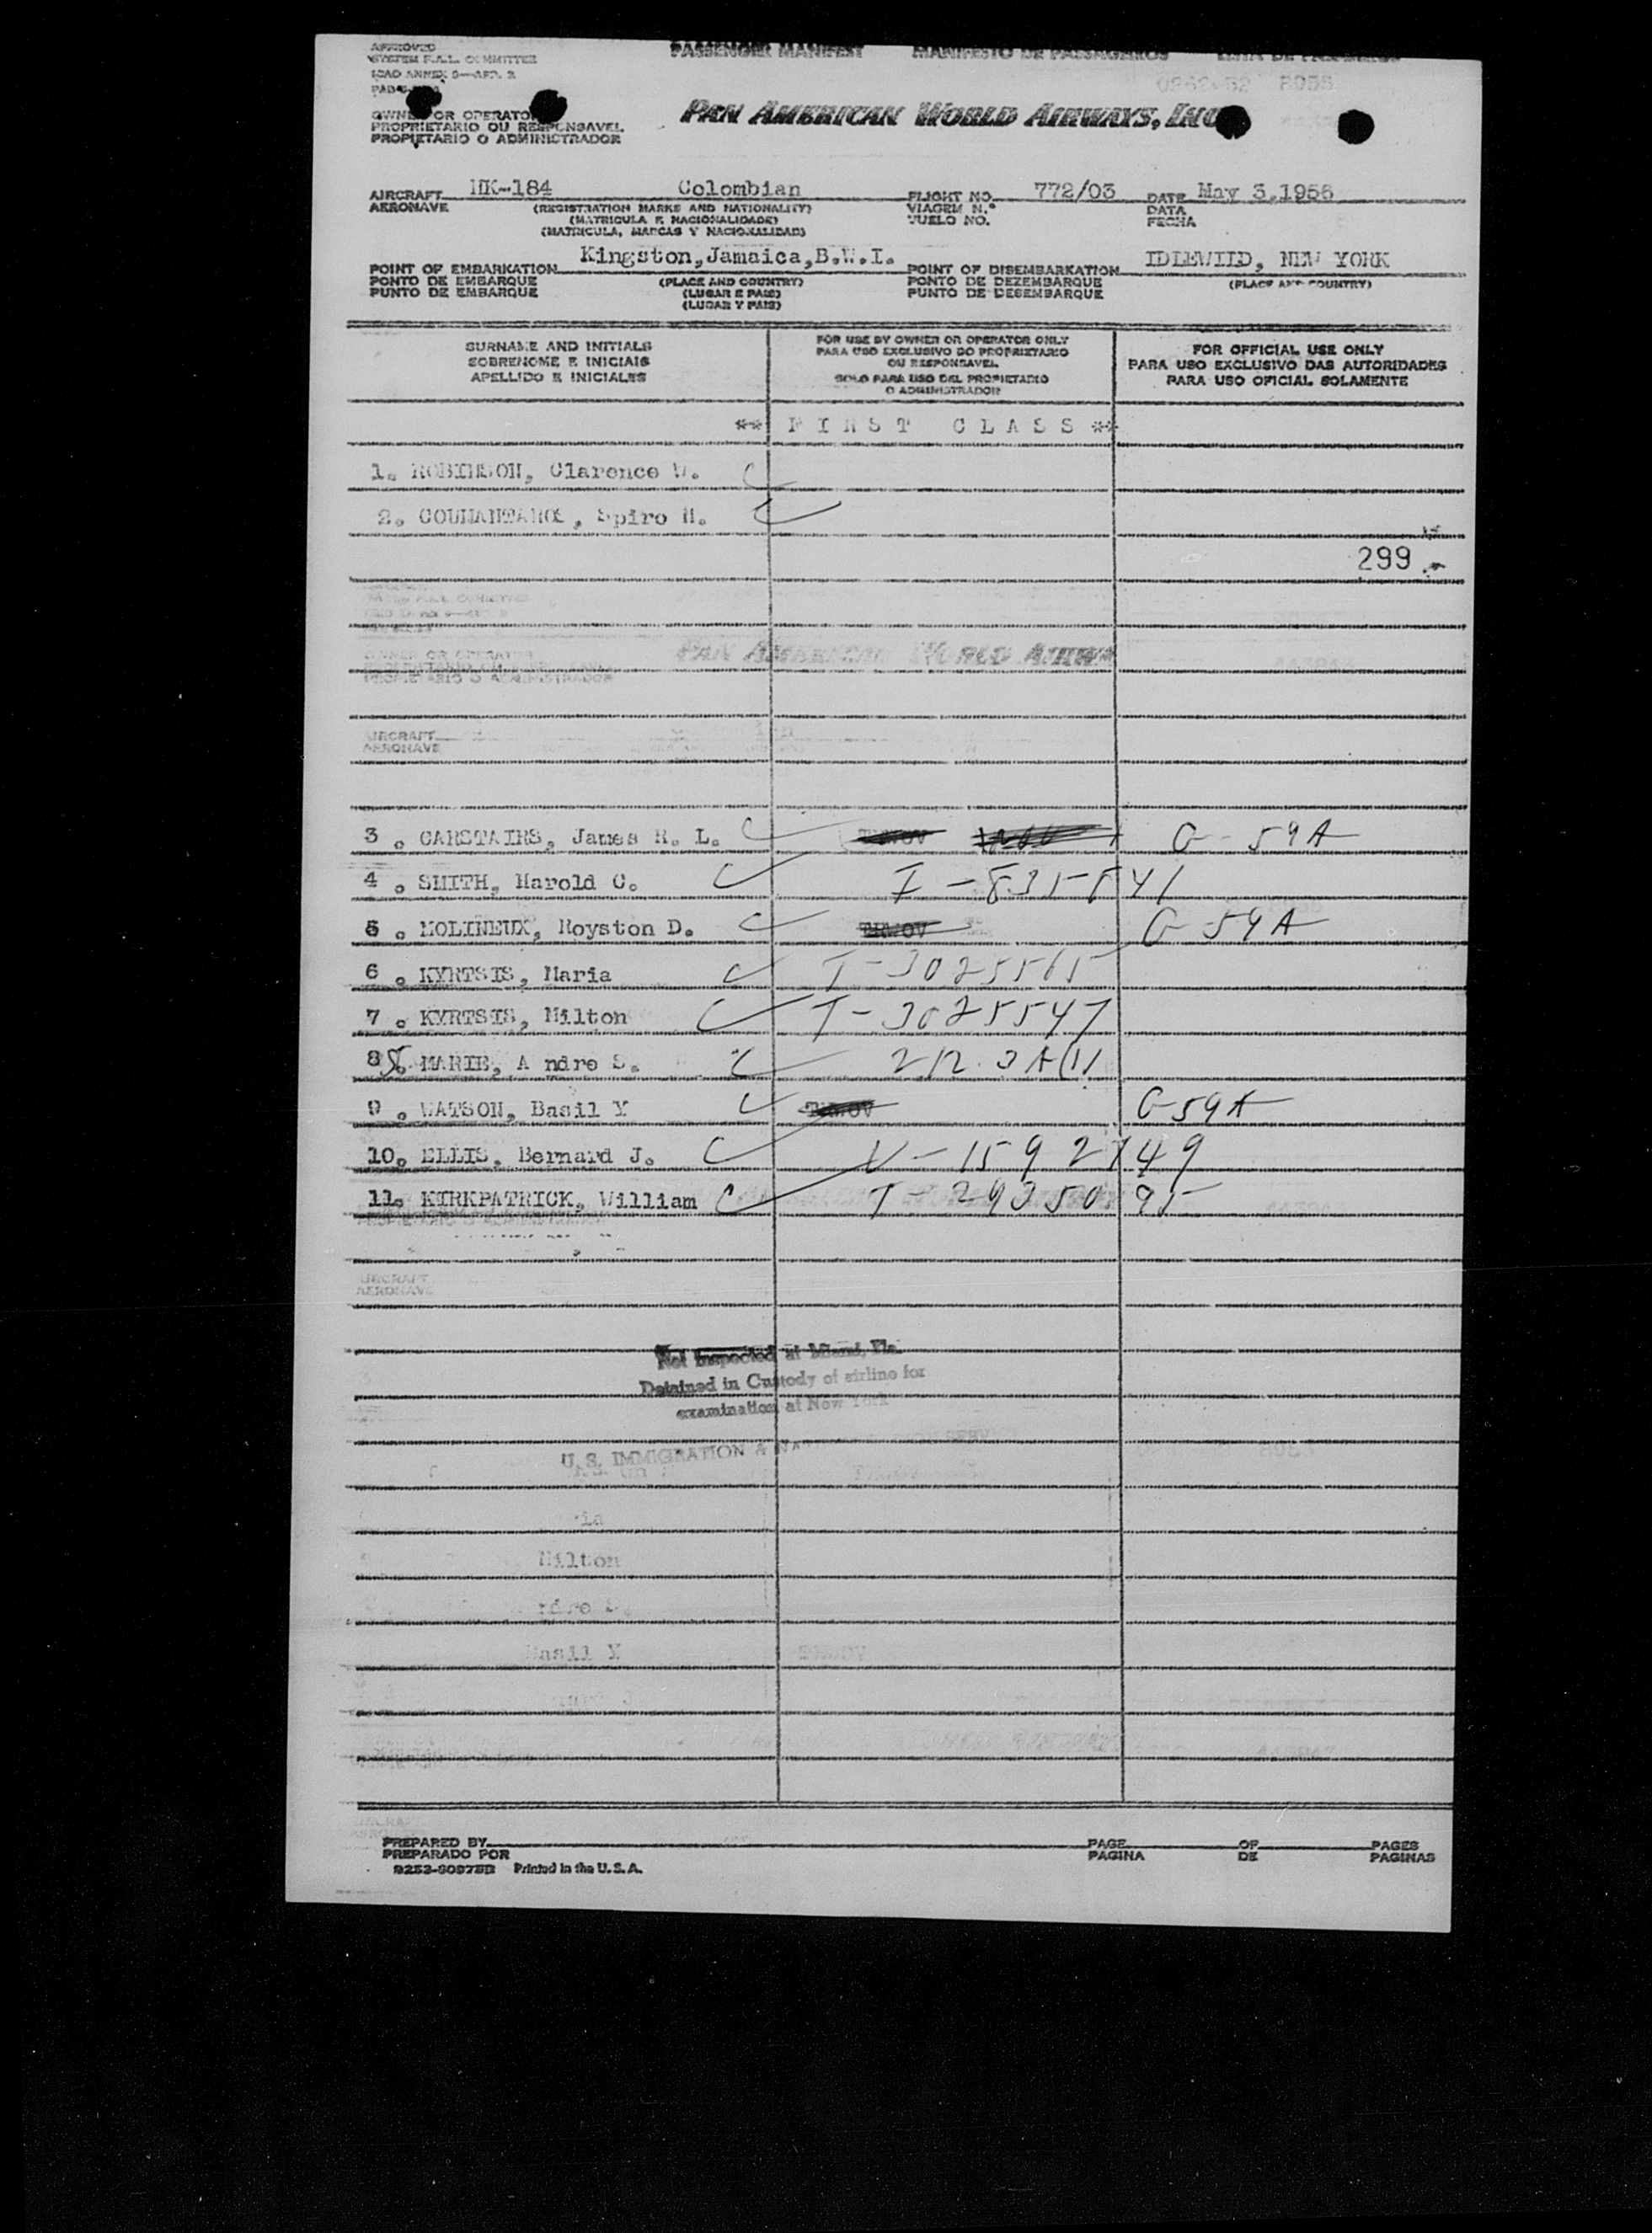 APPROVED
SYSTEM F.A.L. COMMITTEE
ICAO ANNEX 9—APP. 2
PASSENGER MANIFEST MANIFESTO DE PASSAGEIROS
OWNER OR OPERATOR
PROPRIETARIO OU RESPONSAVEL
PROPIETARIO O ADMINISTRADOR
PAN AMERICAN WORLD AIRWAYS, INC
AIRCRAFT HK-184 Colombian FLIGHT NO. 772/03 DATE May 3,1956
AERONAVE (REGISTRATION MARKS AND NATIONALITY) VIAGEM N.º DATA
(MATRICULA E NACIONALIDADE) VUELO NO. FECHA
(MATRICULA, MARCAS Y NACIONALIDAD)
POINT OF EMBARKATION Kingston,Jamaica,B.W.I. POINT OF DISEMBARKATION IDLEWILD, NEW YORK
PONTO DE EMBARQUE (PLACE AND COUNTRY) PONTO DE DEZEMBARQUE (PLACE AND COUNTRY)
PUNTO DE EMBARQUE (LUGAR E PAIS) PUNTO DE DESEMBARQUE
(LUGAR Y PAIS)
SURNAME AND INITIALS
SOBRENOME E INICIAIS
APELLIDO E INICIALES
FOR USE BY OWNER OR OPERATOR ONLY
PARA USO EXCLUSIVO DO PROPRIETARIO
OU RESPONSAVEL
SOLO PARA USO DEL PROPIETARIO
O ADMINISTRADOR
FOR OFFICIAL USE ONLY
PARA USO EXCLUSIVO DAS AUTORIDADES
PARA USO OFICIAL SOLAMENTE
** F I R S T C L A S S **
1. ROBINSON, Clarence W.
2. Spiro N.
299
PAN AMERICAN WORLD AIRW
AIRCRAFT
AERONAVE
3 . CARSTAIRS, James R. L. G-59A
4 . SMITH, Harold C.
5 . MOLINEUX, Royston D. G-59A
6 . KYRTSIS, Maria T-3025565
7 . KYRTSIS, Milton T-3025547
8 . MARIE, A ndre S. 212.3A(1)
9 . WATSON, Basil Y G-59A
10. ELLIS, Bernard J. V-1592749
11. KIRKPATRICK, William T-2935095
AIRCRAFT
AERONAVE
Not Inspected at Miami, Fla.
Detained in Custody of airline for
examination at New York
U.S. IMMIGRATION &
Milton
Basil Y
PREPARED BY PAGE OF PAGES
PREPARADO POR PAGINA DE PAGINAS
Printed in the U.S.A.